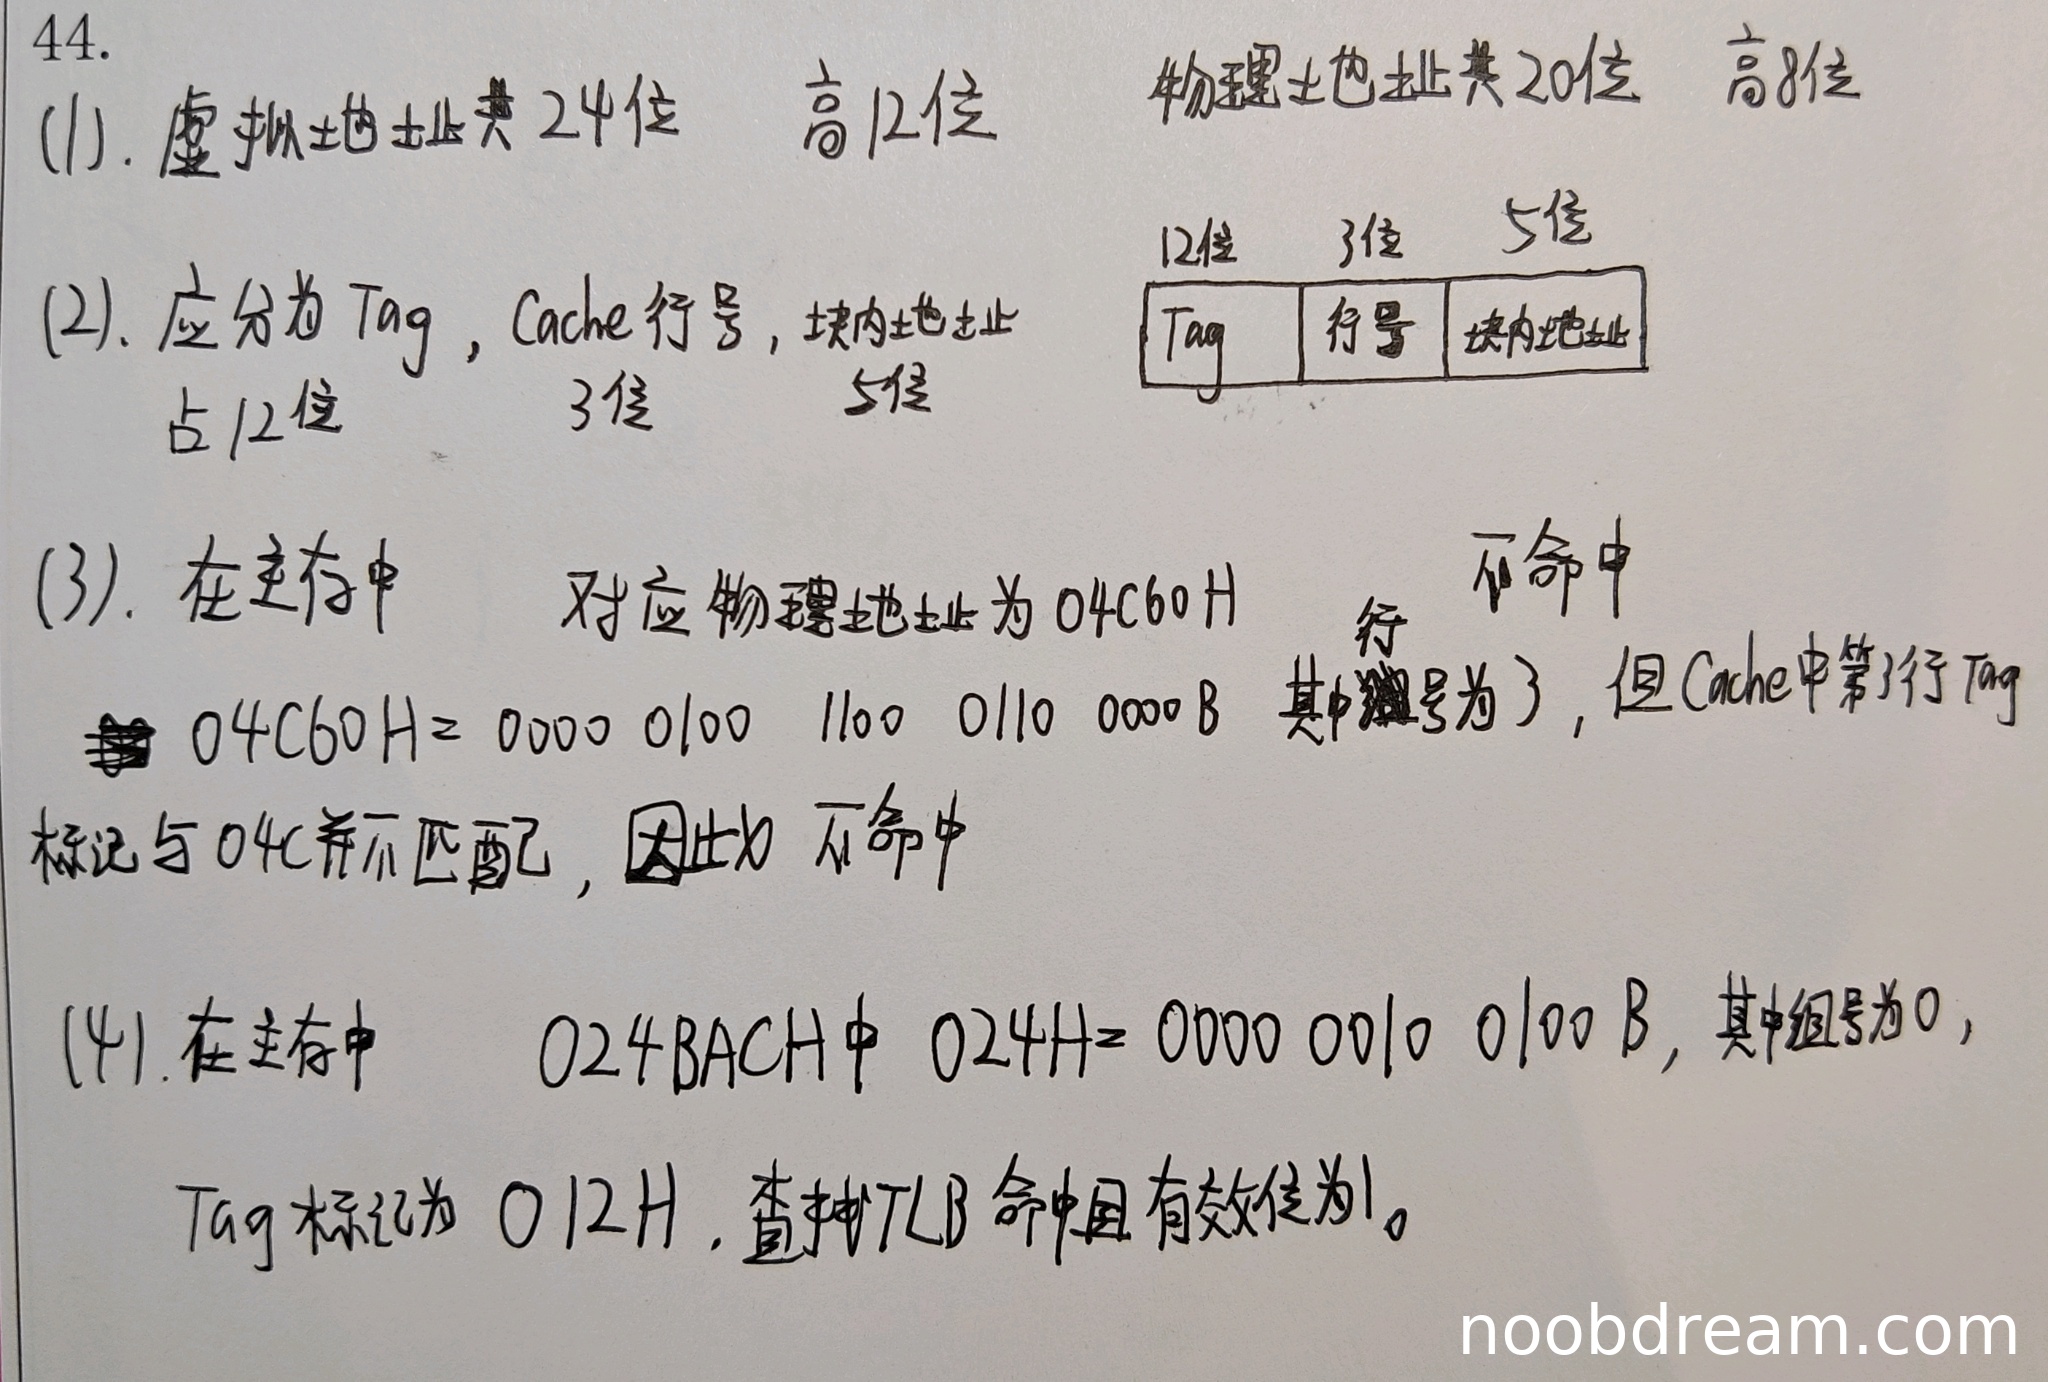 44.
(1). 虚拟地址共24位 高12位 物理地址共20位 高8位
12位 3位 5位
(2). 应分为 Tag, Cache行号, 块内地址 Tag 行号 块内地址
占12位 3位 5位
(3). 在主存中 对应物理地址为04C60H 不命中
04C60H= 0000 0100 1100 0110 0000B 其中行号为3, 但Cache中第3行Tag
标记与04C并不匹配, 因此为 不命中
(4). 在主存中 024BACH中 024H= 0000 0010 0100 B, 其中组号为0,
Tag标记为 012H. 查找TLB命中且有效位为1。
noobdream.com